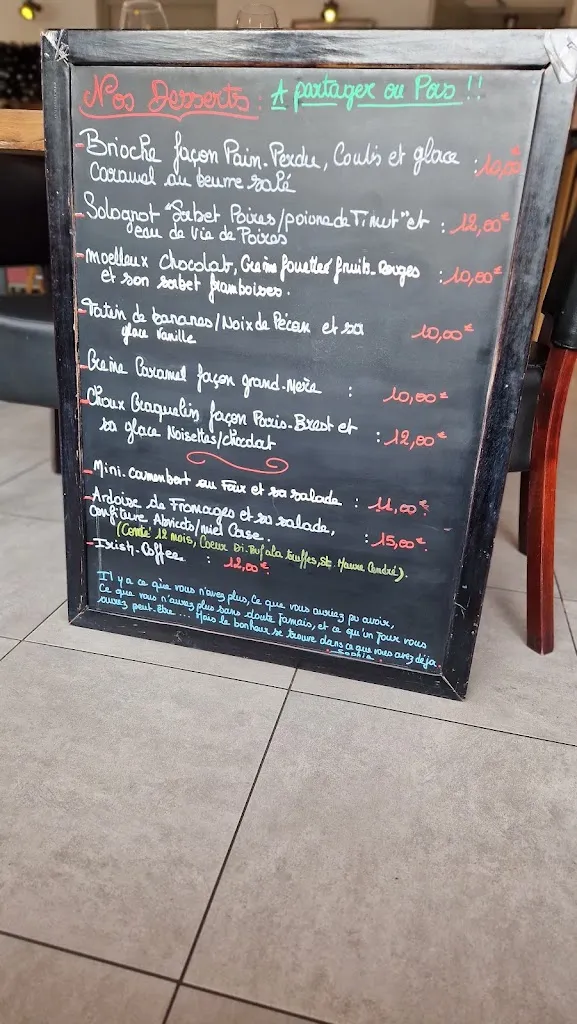 Nos Desserts : A partager ou Pas !!
- Brioche façon Pain-Perdu, Coulis et glace : 10,00€
Caramel au beurre salé
- Solognot "Sorbet Poires/poivre de Timut" et : 12,00€
eau de Vie de Poires
- Moelleux Chocolat, Crème fouettée fruits-Rouges : 10,00€
et son sorbet framboises.
- Tatin de bananes/Noix de Pécan et sa 10,00€
glace Vanille
- Crème Caramel façon grand-Mère : 10,00€
- Choux Craquelin façon Paris-Brest et : 12,00€
sa glace Noisettes/chocolat
- Mini-camembert au Four et sa salade : 11,00€
- Ardoise de Fromages et sa salade, : 15,00€.
confiture Abricots/miel Corse.
(Comté 12 mois, Coeur Di Bufala truffes, Ste Maure Cendré).
- Irish-Coffee : 12,00€.
Il y a ce que vous n'avez plus, Ce que vous auriez pu avoir,
Ce que vous n'aurez plus sans doute Jamais, et ce qu'un Jour vous
aurez peut-être ... Mais le bonheur se trouve dans ce que vous avez déjà.
Sophie.